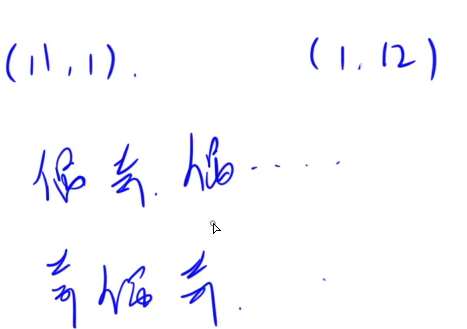 (11,1). (1,12)
偶奇.偶.....
奇偶奇.